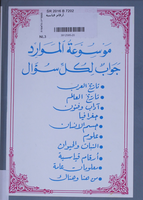 موسوعة الموارد
جواب لكل سؤال
تاريخ العرب
تاريخ العالم
آداب وفنون
جغرافيا
جسم الإنسان
علوم
النبات والحيوان
أرقام قياسية
معلومات عامة
من هنا وهناك